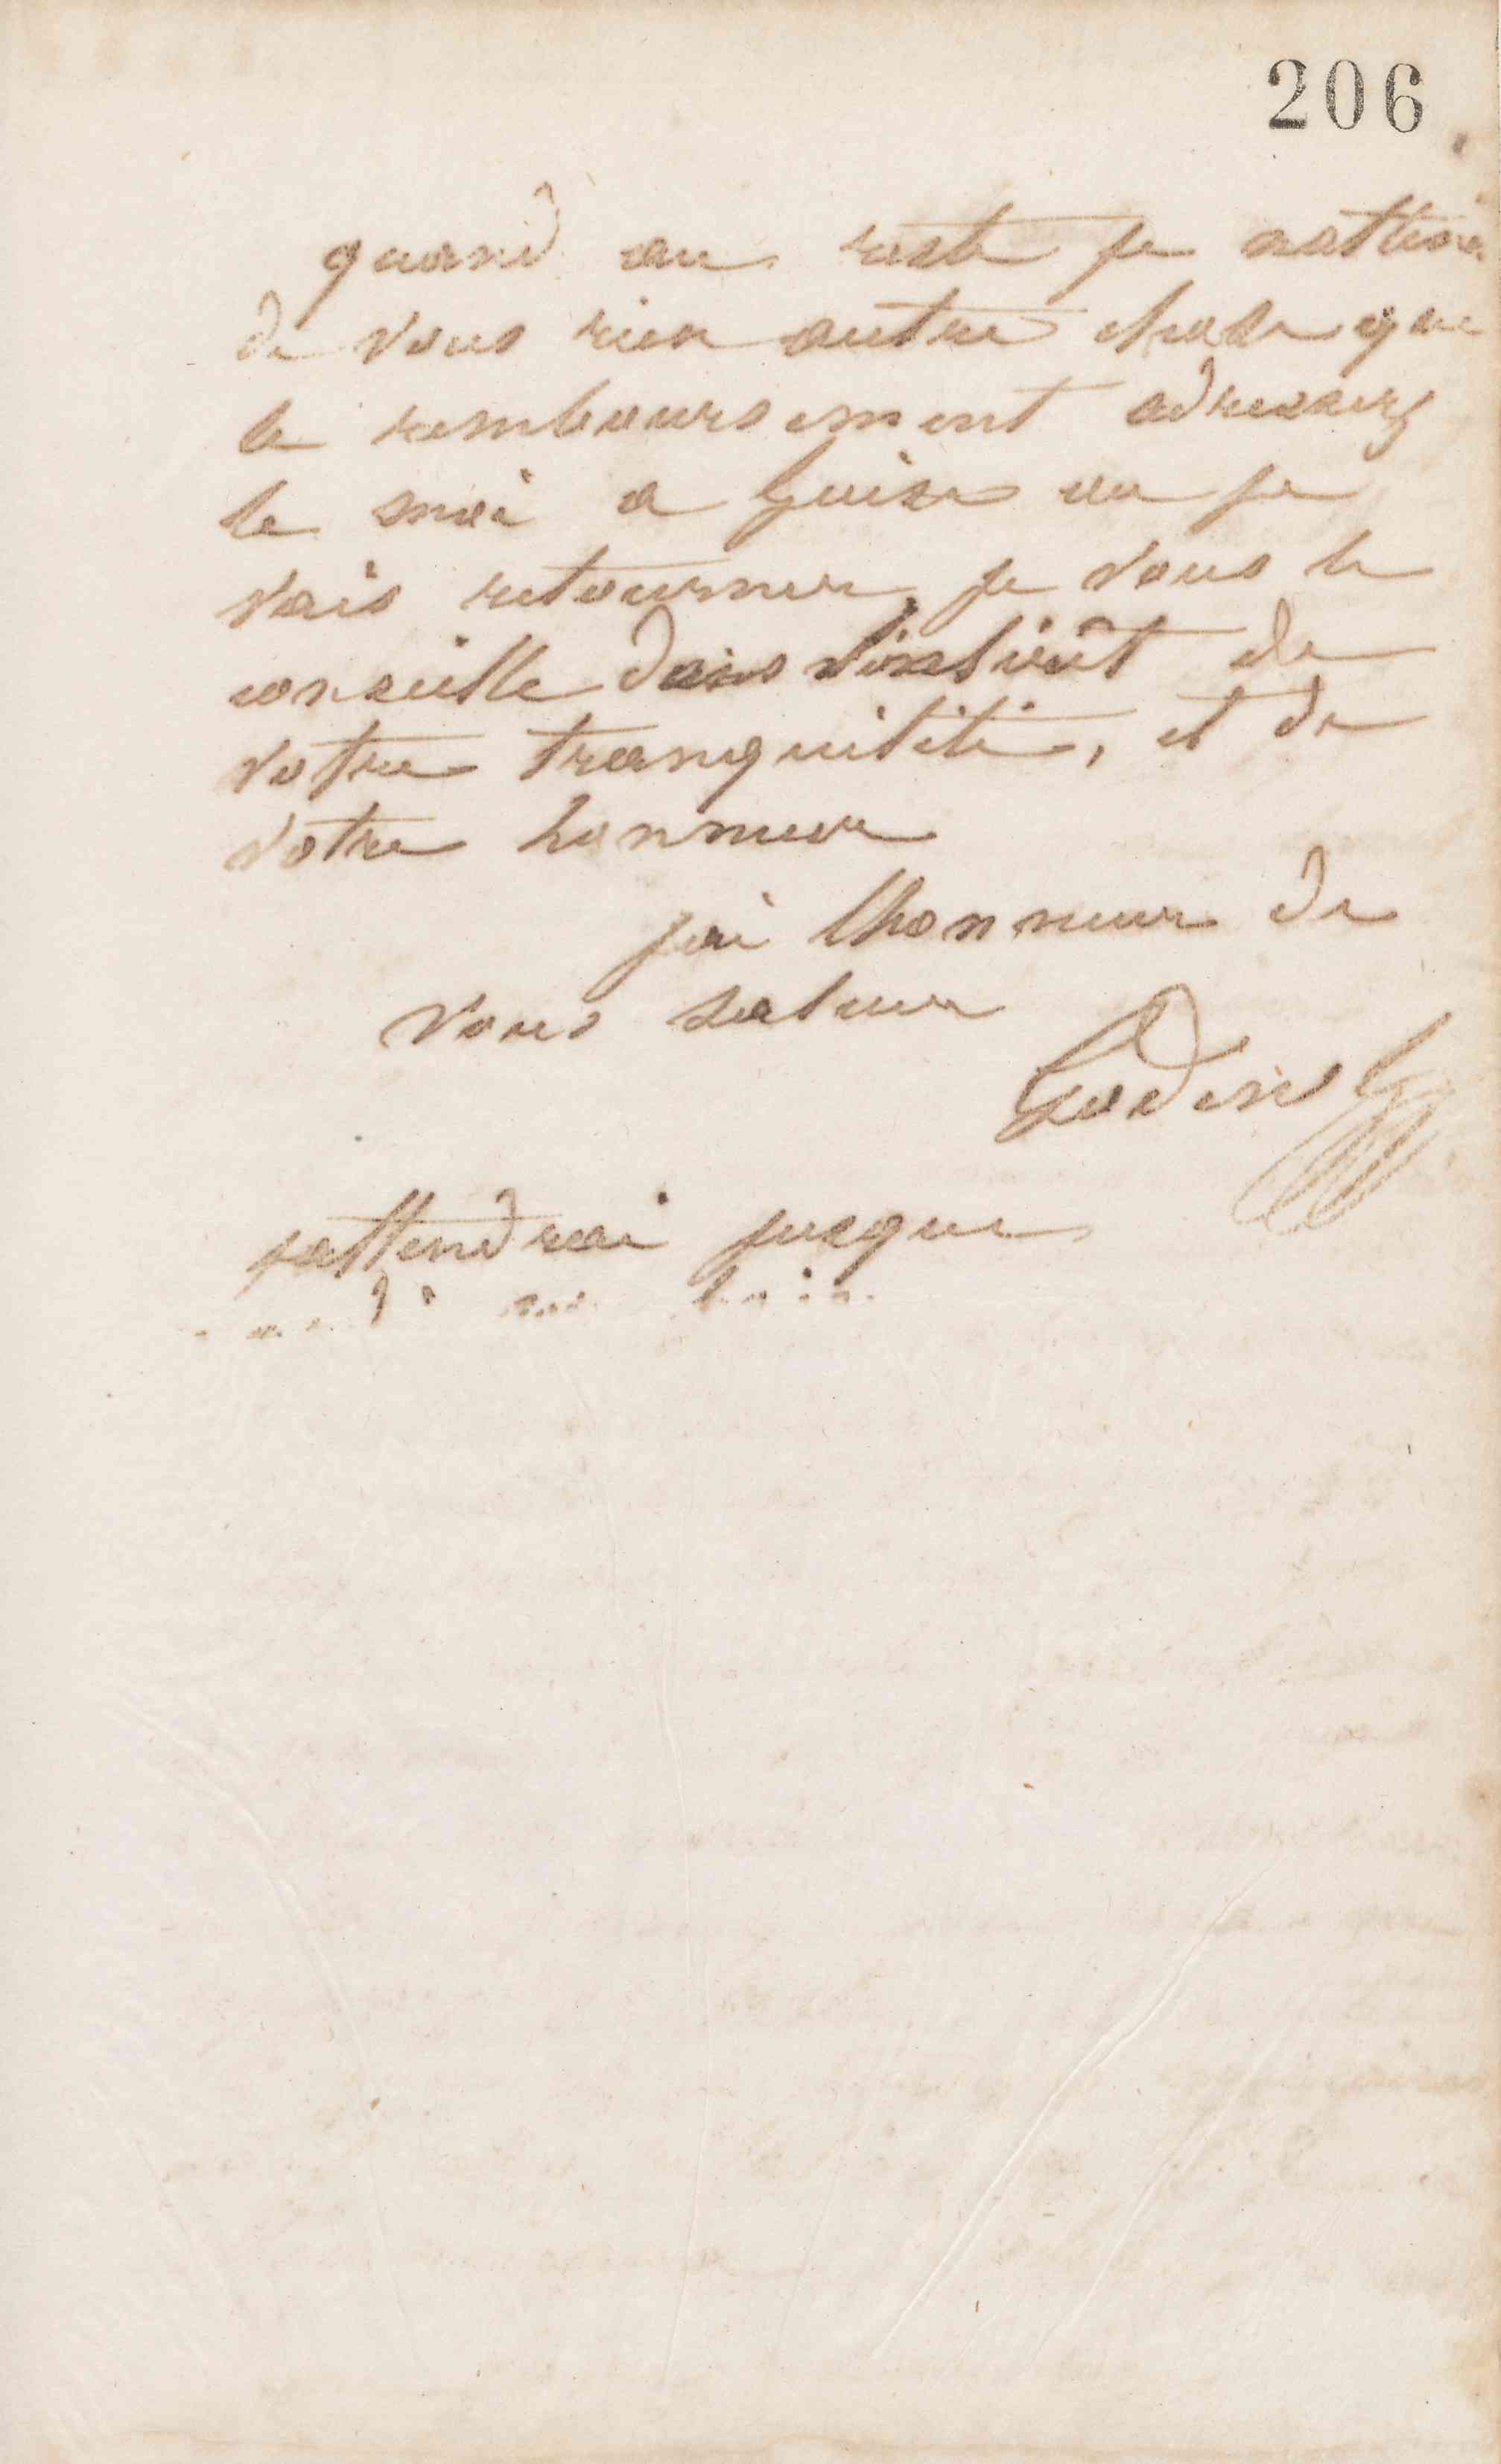 206
quand au reste je nattend
de vous rien autre chose que
le remboursement adressez
le moi a Guise ou je
vais retourner, je vous le
conseille dans l'intérêt de
votre tranquilité, et de
votre honneur
jai lhonneur de
vous saluer
Godin
jattendrai jusque